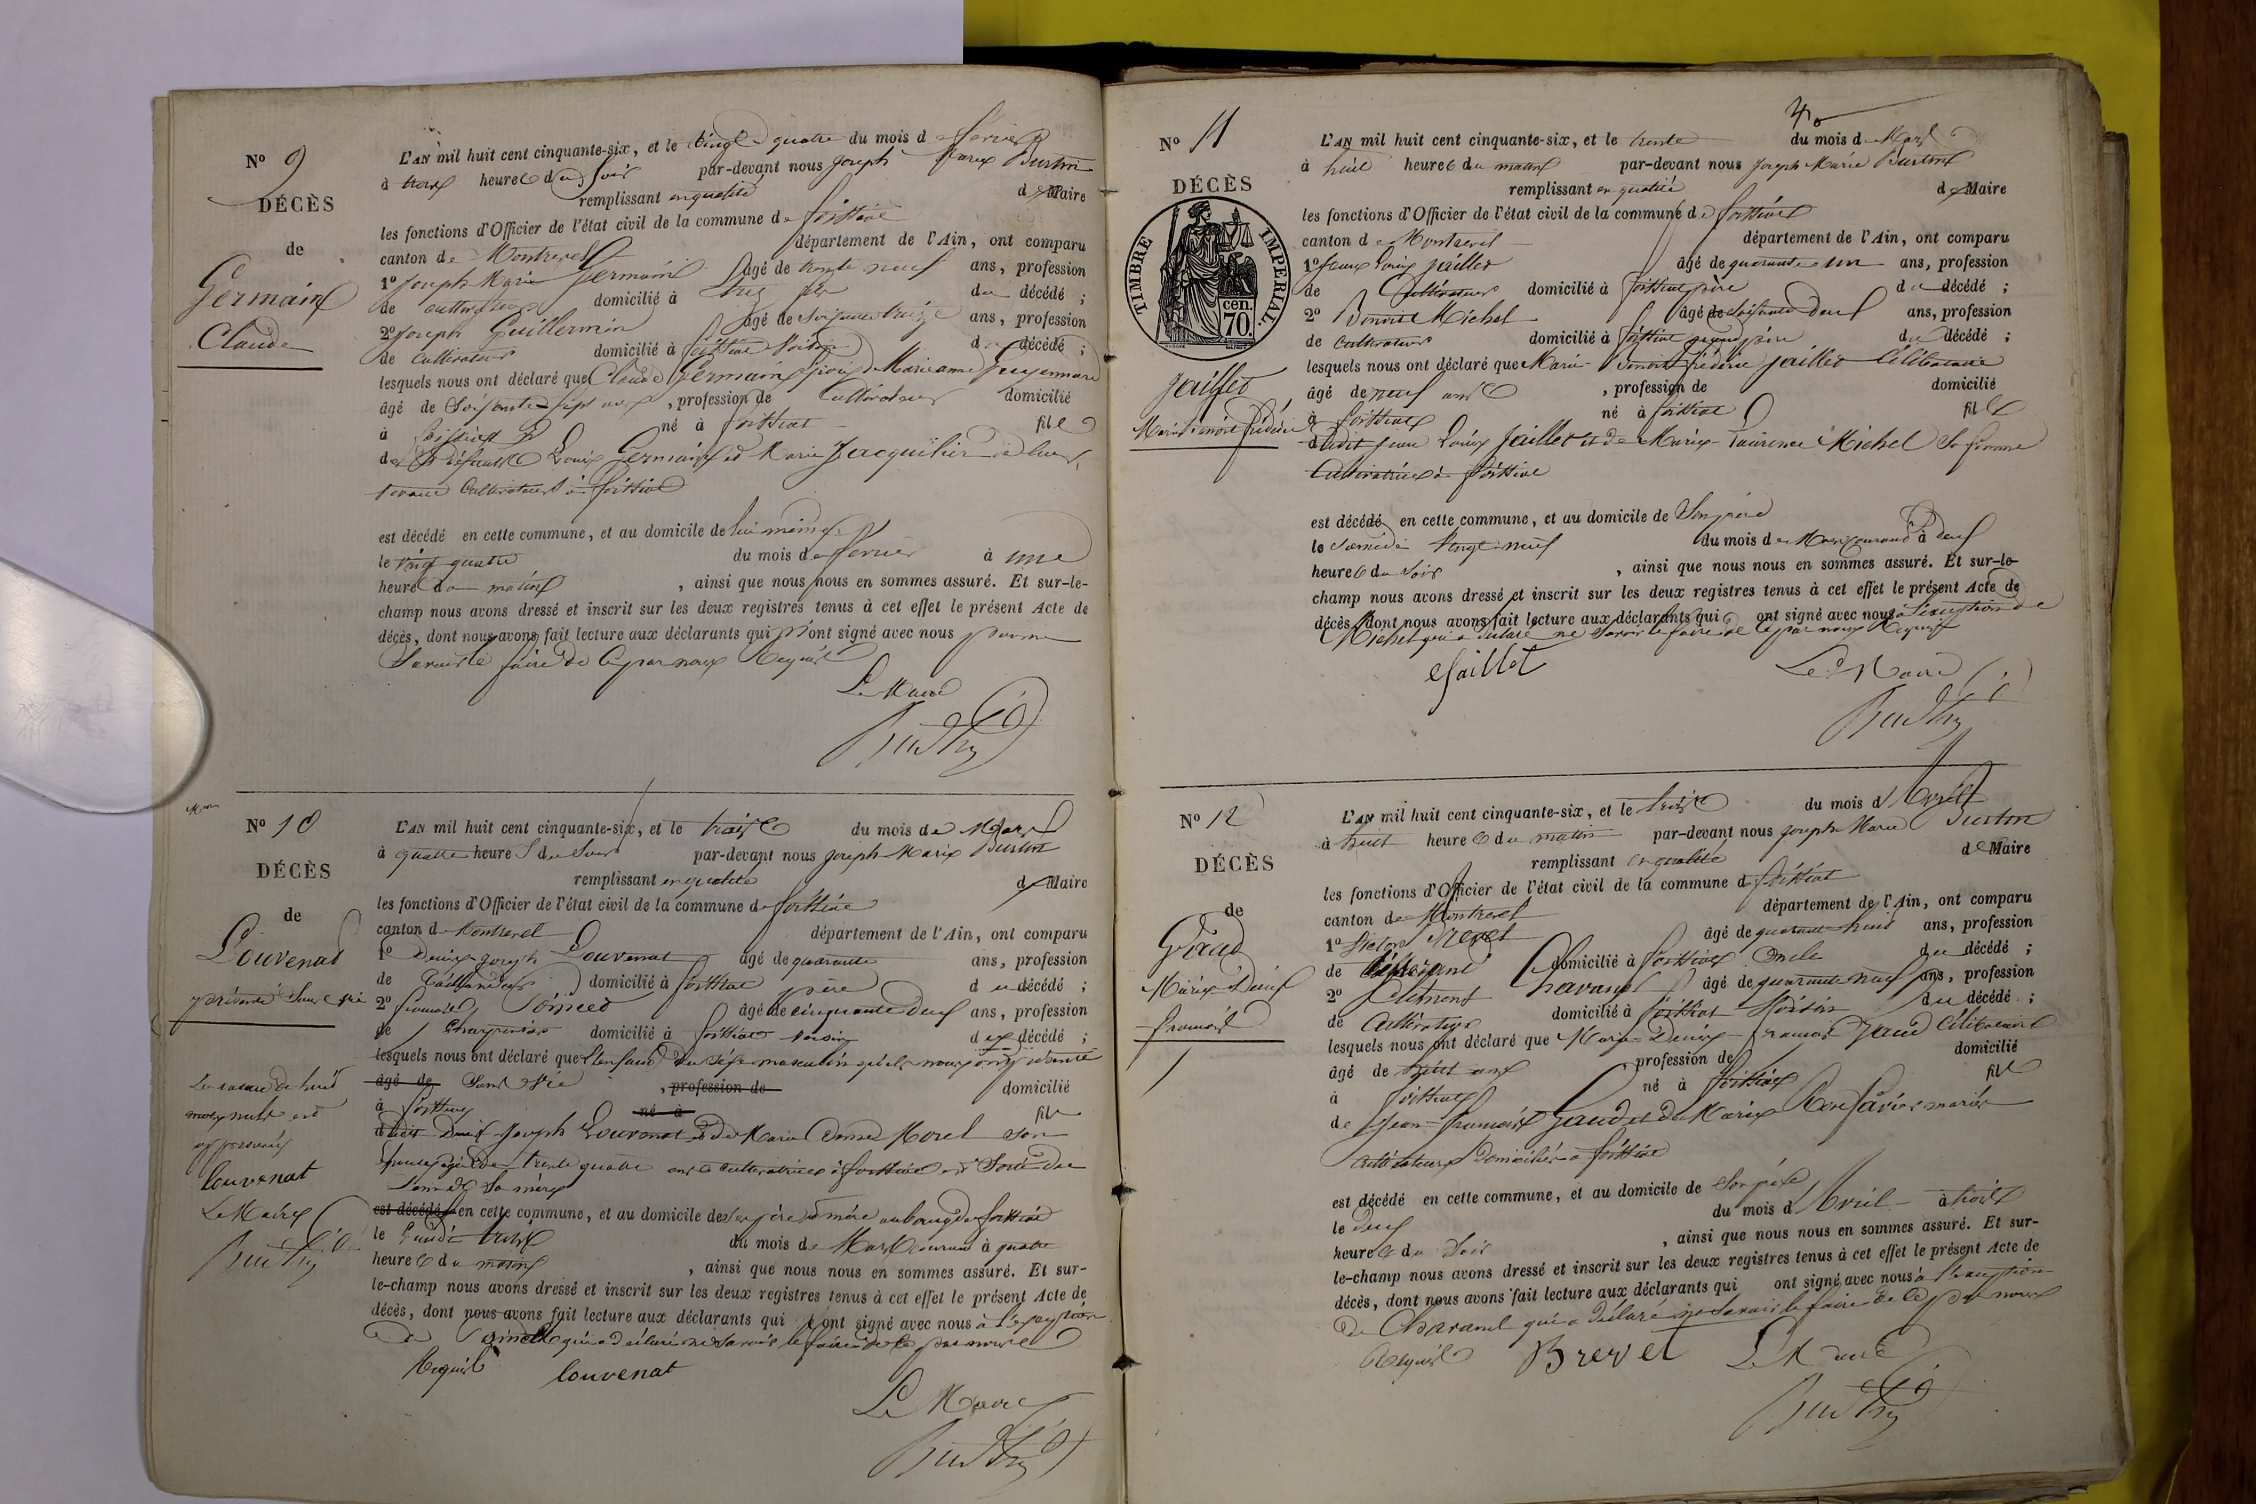 N° 9
DÉCÈS
de
Germain
Claude
L'AN mil huit cent cinquante-six, et le vingt quatre du mois de février
à trois heures du soir par-devant nous Joseph Marie Burtin
remplissant en qualité de Maire
les fonctions d'Officier de l'état civil de la commune de foissiat
canton de Montrevel département de l'Ain, ont comparu
1° Joseph Marie Germain âgé de trente neuf ans, profession
de cultivateur domicilié à du décédé ;
2° Joseph Guillermin âgé de soixante treize ans, profession
de cultivateur domicilié à foissiat voisin du décédé ;
lesquels nous ont déclaré que Claude Germain époux de Marieanne
âgé de soixante sept ans, profession de cultivateur domicilié
à foissiat né à foissiat fils
de défunts Louis Germain et Marie Jacquilier de leur
vivant cultivateurs à foissiat
est décédé en cette commune, et au domicile de lui même
le vingt quatre du mois de fevrier à une
heure du matin, ainsi que nous nous en sommes assuré. Et sur-le-
champ nous avons dressé et inscrit sur les deux registres tenus à cet effet le présent Acte de
décès, dont nous avons fait lecture aux déclarants qui n'ont signé avec nous pour ne
savoir le faire de ce par nous Requis
Le Maire
Burtin
N° 10
DÉCÈS
de
Louvenat
présenté sans vie
La rature de huit
mots nuls est
approuvée
louvenat
Le Maire
Burtin
L'AN mil huit cent cinquante-six, et le treize du mois de Mars
à quatre heures du soir par-devant nous Joseph Marie Burtin
remplissant en qualité de Maire
les fonctions d'Officier de l'état civil de la commune de foissiat
canton de Montrevel département de l'Ain, ont comparu
1° Denis Joseph Louvenat âgé de quarante ans, profession
de domicilié à foissiat père du décédé ;
2° âgé de cinquante deux ans, profession
de Charpentier domicilié à foissiat voisin du décédé ;
lesquels nous ont déclaré que l'enfant du sexe masculin qu'ils nous ont présenté
âgé de sans vie, profession de domicilié
à foissiat né à fils
dudit Denis Joseph Louvenat et de Marie Morel son
épouse âgée de trente quatre ans cultivatrice à foissiat est sorti du
sein de sa mère
est décédé en cette commune, et au domicile de ses père et mère au bourg de foissiat
le du mois de Mars courant à quatre
heures du matin, ainsi que nous nous en sommes assuré. Et sur-
le-champ nous avons dressé et inscrit sur les deux registres tenus à cet effet le présent Acte de
décès, dont nous avons fait lecture aux déclarants qui ont signé avec nous à l'exception
de qui a déclaré ne savoir le faire de ce par nous
Requis louvenat
Le Maire
Burtin
40
N° 11
DÉCÈS
TIMBRE IMPÉRIAL.
70 cen.
Jaillet
Marie Benoit Frédéric
L'AN mil huit cent cinquante-six, et le trente du mois de Mars
à huit heures du matin par-devant nous Joseph Marie Burtin
remplissant en qualité de Maire
les fonctions d'Officier de l'état civil de la commune de foissiat
canton de Montrevel département de l'Ain, ont comparu
1° Jean Louis Jaillet âgé de quarante un ans, profession
de Cultivateur domicilié à foissiat père du décédé ;
2° Benoit Michel âgé de soixante deux ans, profession
de cultivateur domicilié à foissiat grand père du décédé ;
lesquels nous ont déclaré que Marie Benoit frédéric Jaillet Célibataire
âgé de neuf ans, profession de domicilié
à foissiat né à foissiat fils
dudit Jean Louis Jaillet et de Marie Laurence Michel sa femme
Cultivatrice à foissiat
est décédé en cette commune, et au domicile de son père
le samedi vingt neuf du mois de Mars courant à deux
heures du soir, ainsi que nous nous en sommes assuré. Et sur-le-
champ nous avons dressé et inscrit sur les deux registres tenus à cet effet le présent Acte de
décès, dont nous avons fait lecture aux déclarants qui ont signé avec nous à l'exception de
Michel qui a déclaré ne savoir le faire de ce par nous Requis
Jaillet Le Maire
Burtin
N° 12
DÉCÈS
de
Gaud
Marie Denis
françois
L'AN mil huit cent cinquante-six, et le trois du mois d'Avril
à huit heures du matin par-devant nous Joseph Marie Burtin
remplissant en qualité de Maire
les fonctions d'Officier de l'état civil de la commune de foissiat
canton de Montrevel département de l'Ain, ont comparu
1° Victor Brevet âgé de quarante huit ans, profession
de domicilié à foissiat oncle du décédé ;
2° Clément Chavanel âgé de quarante neuf ans, profession
de Cultivateur domicilié à foissiat voisin du décédé ;
lesquels nous ont déclaré que Marie Denis françois Gaud Célibataire
âgé de ans, profession de domicilié
à foissiat né à foissiat fils
de Jean françois Gaud et de Marie mariés
cultivateurs domiciliés à foissiat
est décédé en cette commune, et au domicile de son père
le deux du mois d'Avril à trois
heures du soir, ainsi que nous nous en sommes assuré. Et sur-
le-champ nous avons dressé et inscrit sur les deux registres tenus à cet effet le présent Acte de
décès, dont nous avons fait lecture aux déclarants qui ont signé avec nous à l'exception
de Chavanel qui a déclaré ne savoir le faire de ce par nous
Requis Brevet Le Maire
Burtin